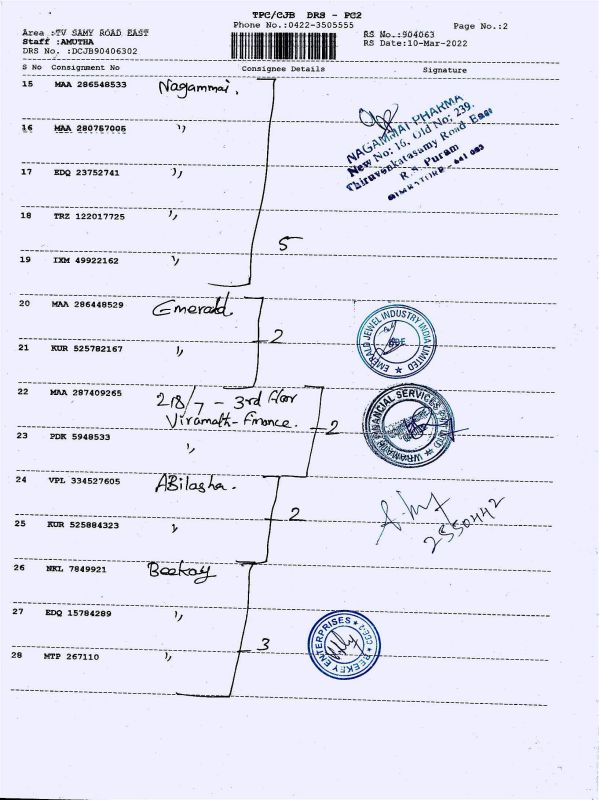 TPC/CJB DRS - PC2
Phone No.:0422-3505555
Page No.:2
Area :TV SAMY ROAD EAST
Staff :AMUTHA
DRS No. :DCJB90406302
RS No.:904063
RS Date:10-Mar-2022
S No Consignment No Consignee Details Signature
15 MAA 286548533 Nagammai.
NAGAMMAI PHARMA
New No: 16, Old No: 239,
Thiruvenkatasamy Road East
R.S. Puram
16 MAA 280757005 "
17 EDQ 23752741 "
18 TRZ 122017725 "
5
19 IXM 49922162 "
20 MAA 286448529 Emerald
2
EMERALD JEWEL INDUSTRY INDIA LIMITED
21 KUR 525782167 "
22 MAA 287409265 218/7 - 3rd floor
Viramath-Finance.
2
FINANCIAL SERVICES
23 PDK 5948533 "
24 VPL 334527605 ABilasha.
2
2550442
25 KUR 525884323 "
26 NKL 7849921 Beekay
27 EDQ 15784289 "
3
BEEKEY ENTERPRISES
28 MTP 267110 "